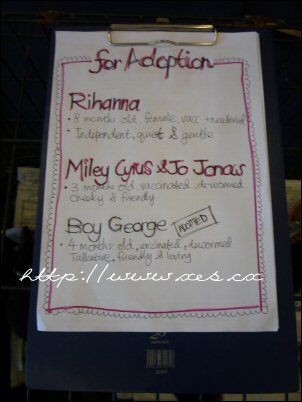 for Adoption
Rihanna
· 8 months old, female, vacc + neutered
· Independent, quiet & gentle
Miley Cyrus & Jo Jonas
· 3 months old, vaccinated, de-wormed
cheeky & friendly
Boy George ADOPTED
· 4 months old, vaccinated, dewormed
Talkative, friendly & loving